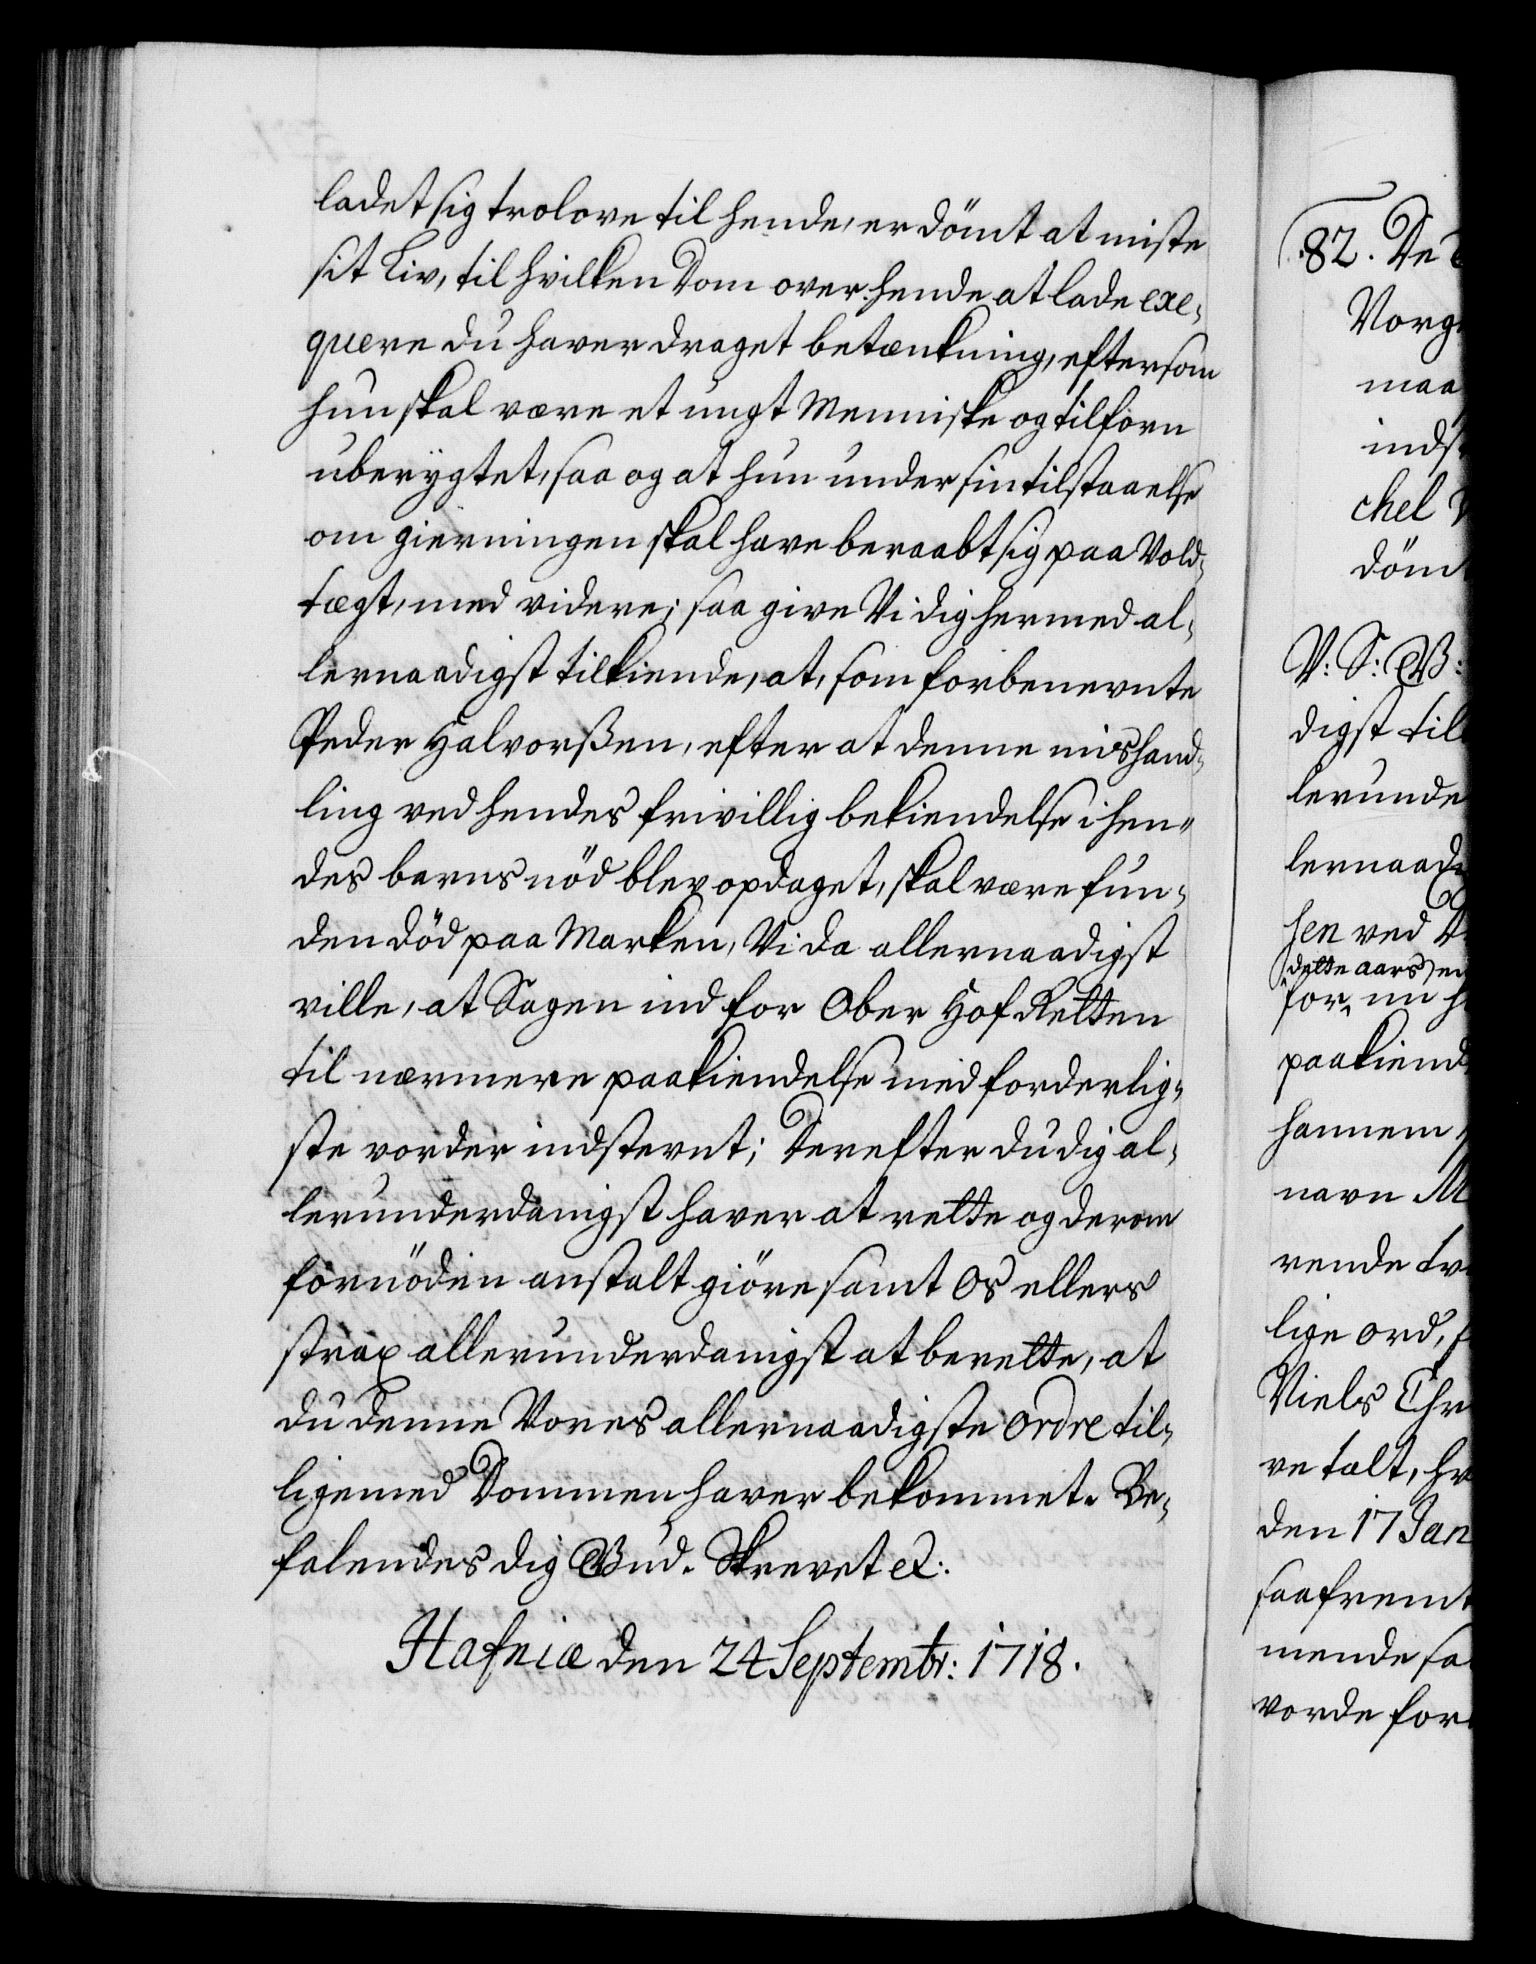 ladet sig trolove til hende, er dömt at miste
sit Liv, til hvilken Dom over hende at lade exe-
quere du haver draget betænkning, eftersom
hun skal være et ungt Menniske og tilforn
uberÿgtet, saa og at hun under sin tilstaaelse
om gierningen skal have beraabt sig paa Vold-
tægt, med videre; saa give Vi dig hermed al-
lernaadigst tilkiende, at, som forbenevnte
Peder Halvorßen, efter at denne mishand-
ling ved hendes frivillig bekiendelse i hen-
des barns nöd blev opdaget, skal være fun-
den död paa Marken, Vi da allernaadigst
ville, at Sagen ind for Ober Hof Retten
til nærmere paakiendelse med forderlig-
ste vorder indstevnt; Derefter du dig al-
lerunderdanigst haver at rette og derom
fornöden anstalt giöre samt Os ellers
strax allerunderdanigst at berette, at
du denne Vores allernaadigste ordre til-
ligemed Dommen haver bekommet. Be-
falendes dig Gud. Skrevet etc:
Hafniæ den 24 Septembr: 1718.
82. De
Vorg
maa
indst
chel
dömt
V: S: G:
digst til
lerunde
lernaad
hen ved
dette aars
for, nu
paakiend
hannem
navn M
rende
lige ord,
Niels Chr
ve talt,
den 17 Jan
saafremt
mende sa
vorde for